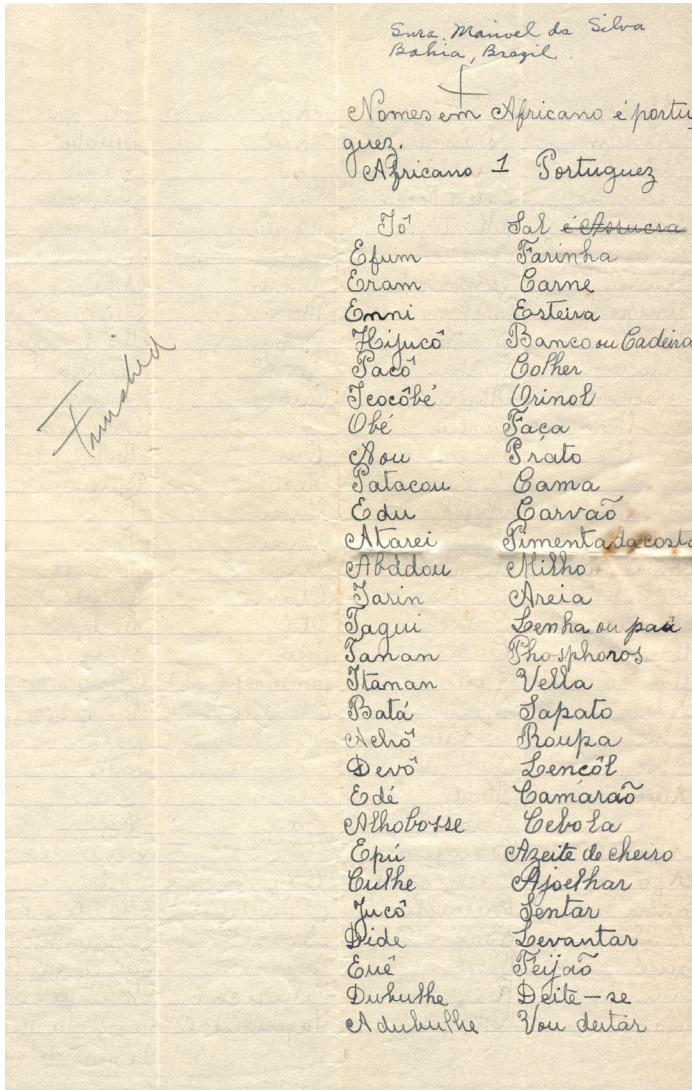 Snra. Manoel da Silva
Bahia, Brazil.
Nomes em Africano é portu
guez.
Africano 1 Portuguez
Iô Sal é Assucra
Efum Farinha
Eram Carne
Enni Esteira
Hijucô Banco ou Cadeira
Pacô Colher
Icocôbé Orinol
Obé Faça
Aou Prato
Patacou Cama
Edu Carvão
Atarei Pimenta da costa
Abádou Milho
Iarin Areia
Iagui Lenha ou pau
Ianan Phosphoros
Itanan Vella
Batá Sapato
Achô Roupa
Devô Lencôl
Edé Camáraõ
Alhobosse Cebola
Epú Azeite de cheiro
Culhe Ajoelhar
Jucô Sentar
Dide Levantar
Euê Feijaõ
Dubulhe Deite-se
Adubulhe Vou deitar
Finished